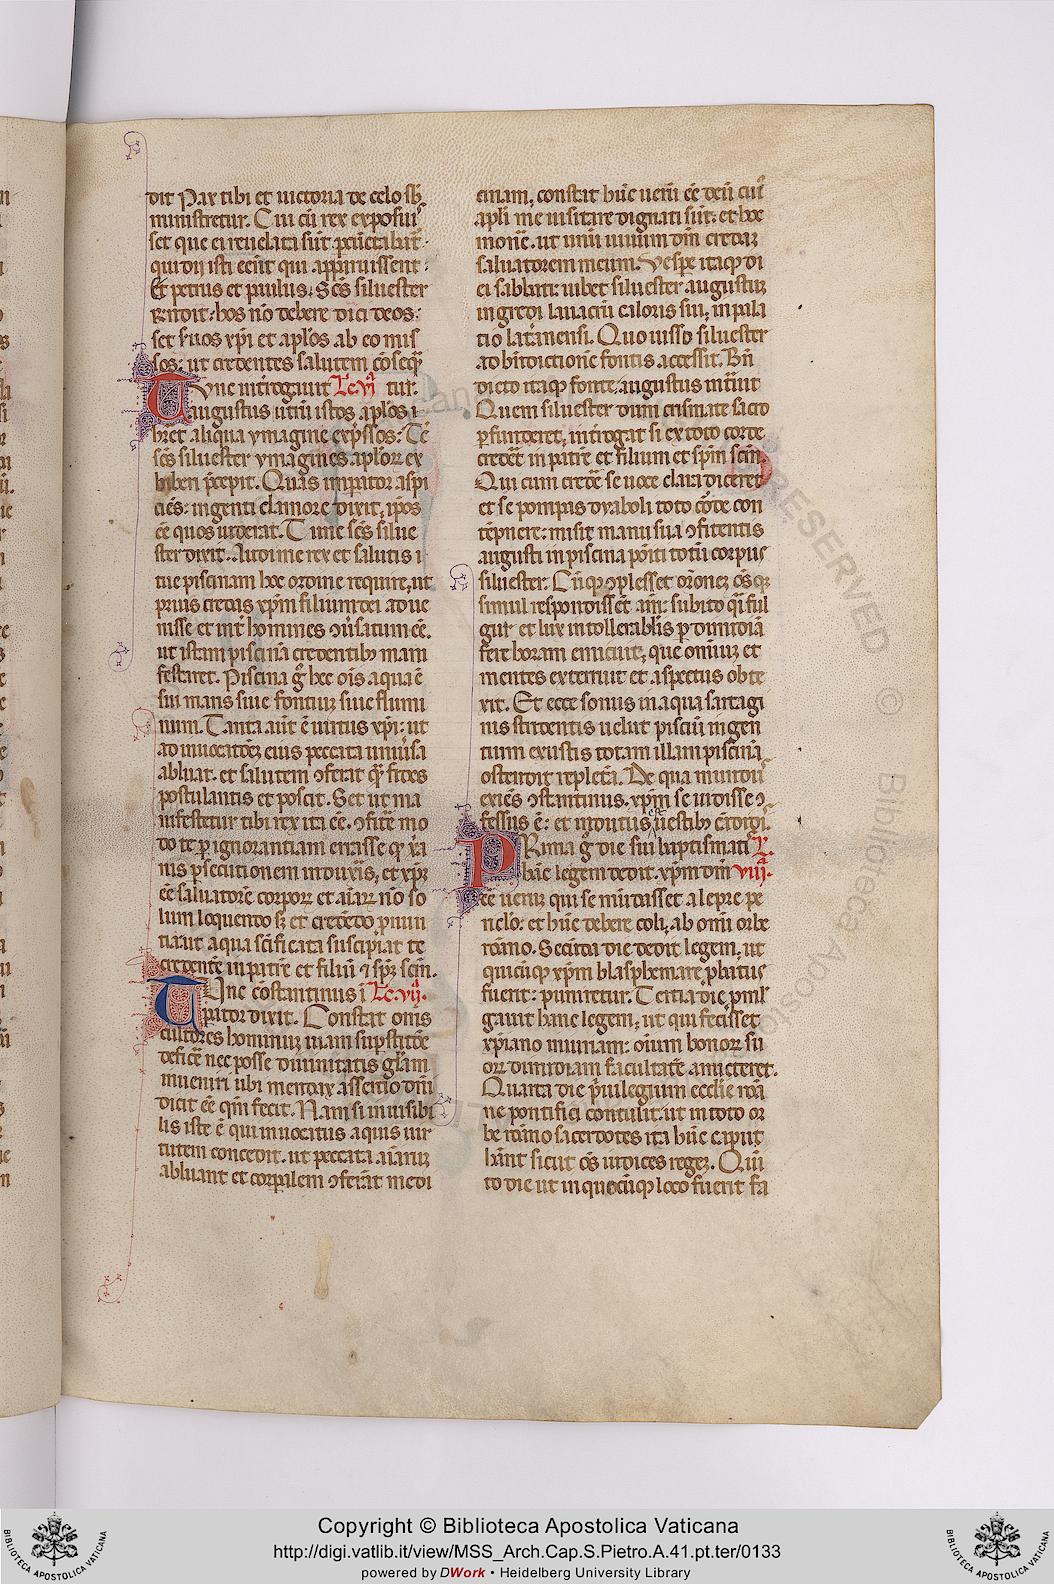 dit Pax tibi et uictoria de celo sb̄
ministretur. Cui cū rex exposuis
set que ei reuelata sūt. pcūctabat̄.
qui dii isti eēnt qui apparuissent.
Et petrus et paulus. Scs siluester
Rn̄dit. hos nō debere dici deos.
set suos xpi et aplos ab eo mis
sos. ut credentes salutem cōseq̄
Tunc introgauit Lc vi cur.
augustus utrū istos aplos i
bret aliqua ymagine exp̄ssos. Tc̄
scs siluester ymagines aplor ex
hiberi p̄cepit. Quas imperator aspi
ciēs. ingenti clamore dixit. ip̄os
eē quos uiderat. Tunc scs silue
ster dixit. Audi me rex et salutis i
tue piscinam hoc ordine require, ut
prius credas xpm filium dei ad ue
nisse et int̄ homines ɔuersatum eē.
ut istam piscinā credentibȝ mani
festaret. Piscina g̊ hec ois aqua ē
siu maris siue fontiuȝ siue flumi
num. Tanta aut̄ ē uirtus xpi. ut
ad inuocatōeȝ eius peccata uniuersa
abluat. et salutem ɔferat q̄ fides
postulantis et poscit. Set ut ma
nifestetur tibi rex ita eē. ɔfitere mo
do te p ignorantiam errasse
nis psecutionem induxis, et xpȝ
eē saluatorē corpor et aīar nō so
lum loquendo sȝ et credēdo pnun
tia ut aqua scīficata suscipiat te
credentē in patre et filiū ⁊ spȝ scm̄.
Tunc cōstantinus i Lc. vij.
pator dixit. Constat oms
cultores hominuȝ
deficē nec posse diuinitatis gl̄am
inueniri ubi mendax assertio
dicit eē qm̄ fecit. Nam si inuisibi
lis iste ē qui inuocatus aquis uir
tutem concedit. ut peccata aīaruȝ
abluant et corpalem ɔferāt medi
cinam, constat hūc uerū eē deū cui
apli me uisitare dignati sūt. et hoc
monē. ut unū uiuum dm̄ credaȝ
saluatorem meum. Vespe itaqȝ di
ei sabbati. iubet siluester augustuȝ
ingredi lauacrū caloris sui, in pala
tio latānensi. Quo iusso siluester
ad bn̄dictionē fontis accessit. Bn̄
dicto itaqȝ fonte. augustus intuit
Quem siluester dum crismate sacro
pfunderet, introgat si ex toto corde
credēt in patre et filium et spm scm̄.
Qui cum credē se uoce clara diceret
et se pompis dyaboli toto cōrde con
tēpnere. misit manu sua ɔfitentis
augusti in piscina pōiti totū corpus
siluester. Cūqȝ ɔplesset oīoneȝ
simul respondissēt am̄. subito q̄i ful
gur et lux intollerabilis p dimidiā
fere horam emicuit, que omniuȝ et
mentes exterruit et aspectus obte
xit. Et ecce sonus in aqua sartagi
nis stridentis uelut pisciū ingen
tium exustis totam illam piscinā
ostendit repletā. De qua mundus
exiēs ɔstantinus. xpm se uidisse ɔ
fessus ē. et indutus uestibȝ cādidis.
PRima g̊ die sui baptismatis L
hāc legem dedit. xpm dm̄ viij.
eē ueruȝ qui se mūdasset a lepre pe
riclo. et hūc debere coli, ab omi orbe
rōmano. Secūda die dedit legem, ut
quicūqȝ xpm blasphemare pbatus
fuerit. puniretur. Tertia die pmul
gauit hanc legem, ut qui fecisset
xpiano iniuriam. oium bonor su
or dimidiam facultatē amicteret.
Quarta die p̄iuilegium ecclie roā
ne pontifici contulit. ut in toto or
be rōmano sacerdotes ita hūc caput
hānt sicut oēs iudices regeȝ. Quī
to die ut in quocūqȝ loco fuerit fa
Copyright © Biblioteca Apostolica Vaticana
http://digi.vatlib.it/view/MSS_Arch.Cap.S.Pietro.A.41.pt.ter/0133
powered by DWork • Heidelberg University Library